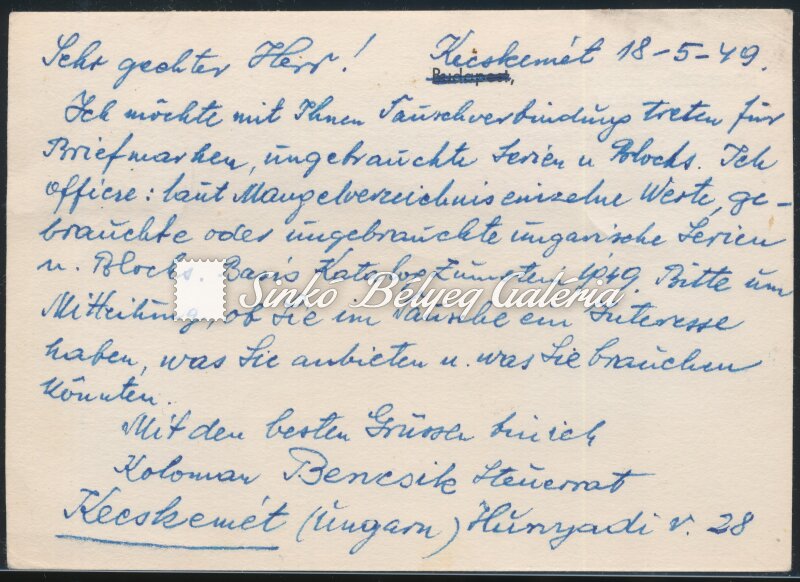 Sehr geehrter Herr! Kecskemét 18-5-49.
Budapest,
Ich möchte mit Ihnen Tauschverbindung treten für
Briefmarken, ungebrauchte Serien u Blocks. Ich
offiere: laut Mangelverzeichnis einzelne Werte, ge-
brauchte oder ungebrauchte ungarische Serien
u. Blocks. Basis Katalog Zumstein 1949. Bitte um
Sinkó Bélyeg Galéria
Mitteilung, ob Sie im Tausche ein Interesse
haben, was Sie anbieten u. was Sie brauchen
könnten.
Mit den besten Grüssen bin ich
Koloman Bencsik Steuerrat
Kecskemét (Ungarn) Hunyadi v. 28